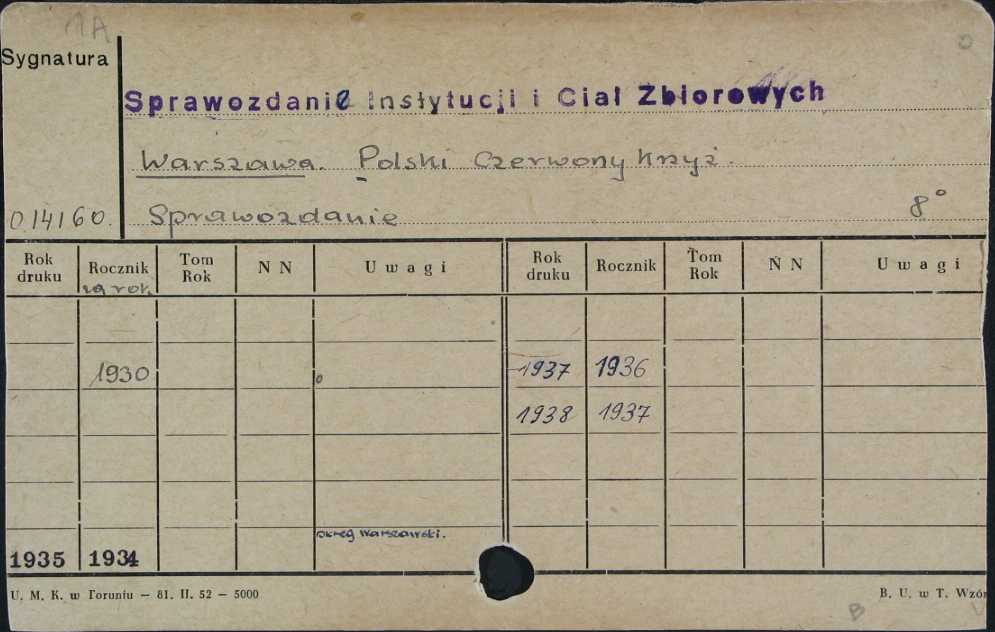 1A
Sygnatura
Sprawozdanie Instytucji i Ciał Zbiorowych
Warszawa. Polski Czerwony Krzyż.
014160. Sprawozdanie 8°
Rok druku Rocznik za rok Tom Rok N N Uwagi Rok druku Rocznik Tom Rok N N Uwagi
1930 1937 1936
1938 1937
okręg Warszawski.
1935 1934
U. M. K. w Toruniu — 81. II. 52 — 5000 B. U. w T. Wzór
B V